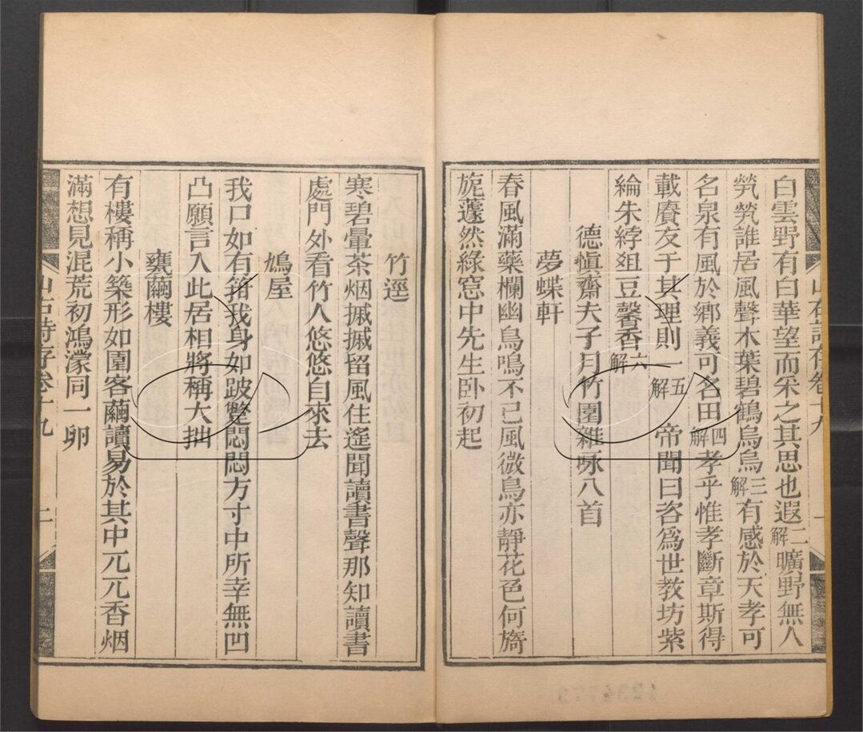 白雲野有白華望而采之其思也遐二解曠野無人
煢煢誰居風聲木葉碧鶴烏烏三解有感於天孝可
名泉有風於鄉義可名田四解孝乎惟孝斷章斯得
載賡友于其理則一五解帝聞曰咨爲世教坊紫
綸朱綍俎豆馨香六解
德愼齋夫子月竹圍雜咏八首
夢蝶軒
春風滿藥欄幽鳥鳴不已風微鳥亦靜花色何旖
旎蘧然綠窓中先生卧初起
竹逕
寒碧暈茶烟摵摵留風住遙聞讀書聲那知讀書
處門外看竹人悠悠自來去
鳩屋
我口如有箝我身如跛躄悶悶方寸中所幸無凹
凸願言入此居相將稱大拙
甕繭樓
有樓稱小築形如圍客繭讀易於其中元元香烟
滿想見混荒初鴻濛同一卵
山右詩存卷十九 二